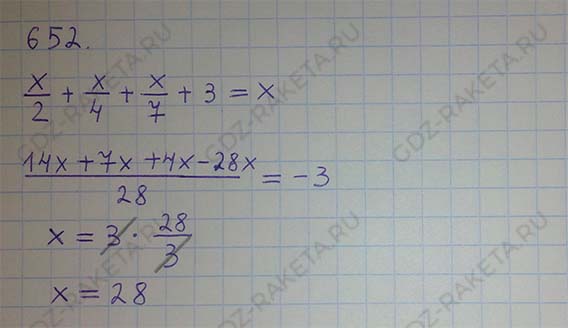 652.
x/2 + x/4 + x/7 + 3 = x
(14x + 7x + 4x - 28x)/28 = -3
x = 3 · 28/3
x = 28
GDZ-RAKETA.RU
GDZ-RAKETA.RU
GDZ-RAKETA.RU
GDZ-RAKETA.RU
GDZ-RAKETA.RU
GDZ-RAKETA.RU